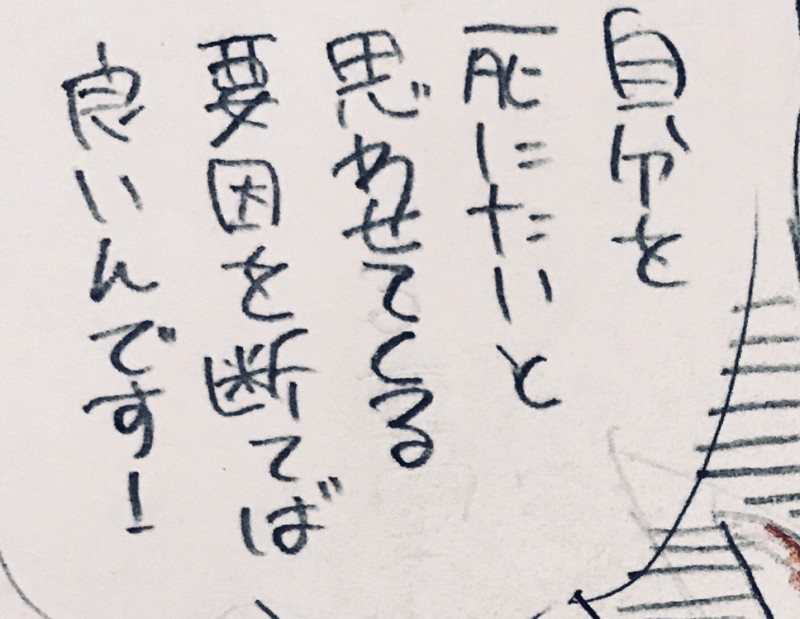 自分を
死にたいと
思わせてくる
要因を断てば
良いんです!